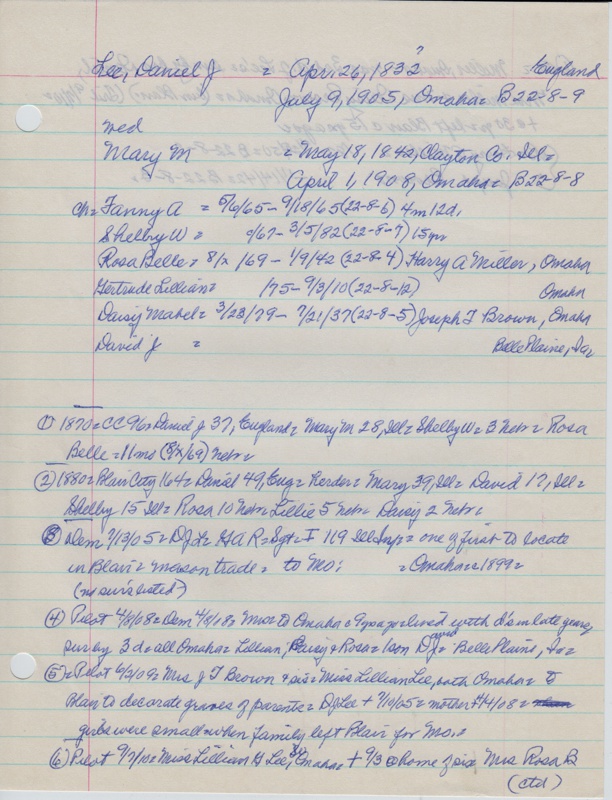 Lee, Daniel J = Apr. 26, 1832" England
July 9, 1905, Omaha= B22-8-9
wed
Mary M = May 18, 1842, Clayton Co. Ill=
April 1, 1908, Omaha= B22-8-8
ch= Fanny A = 5/6/65 - 9/18/65 (22-8-6) 4m 12d.
Shelby W = c/67 - 3/5/82 (22-8-7) 15 yr
Rosa Belle = 8/x/69 - 1/9/42 (22-8-4) Harry A Miller, Omaha
Gertrude Lillian= /75 - 9/3/10 (22-8-12) Omaha
Daisy Mabel = 3/23/79 - 7/21/37 (22-8-5) Joseph T Brown, Omaha
David J = Belle Plaine, Ia=
① 1870= CC 96= Daniel J 37, England= Mary M 28, Ill= Shelby W= 3 Nebr= Rosa
Belle = 11 ms (8/x/69) Nebr=
② 1880= Blair City 164= Daniel 49, Eng= Herder= Mary 39, Ill= David 17, Ill=
Shelby 15 Ill= Rosa 10 Nebr= Lillie 5 Nebr= Daisy 2 Nebr=
③ Dem 7/13/05= DJL= GAR= Sgt= I 119 Ill Inf= one of first to locate
in Blair= mason trade= to Mo: = Omaha= c1899=
(no surv listed)
④ Pilot 4/8/08= Dem 4/8/08= Mrs= to Omaha c 9 yr ago= lived with d's in late years,
surv by 3 d= all Omaha= Lillian, Daisy & Rosa= 1 son DJ Belle Plaine, Ia=
⑤ = Pilot 6/2/09= Mrs J T Brown & sis= Miss Lillian Lee, both Omaha= to
Blair to decorate graves of parents= DJ Lee + 7/9/05= mother + 4/1/08=
girls were small when family left Blair for Mo.=
⑥ Pilot 9/7/10= Miss Lillian G Lee, Omaha + 9/3 @ home of sis Mrs Rosa B
(ctd)